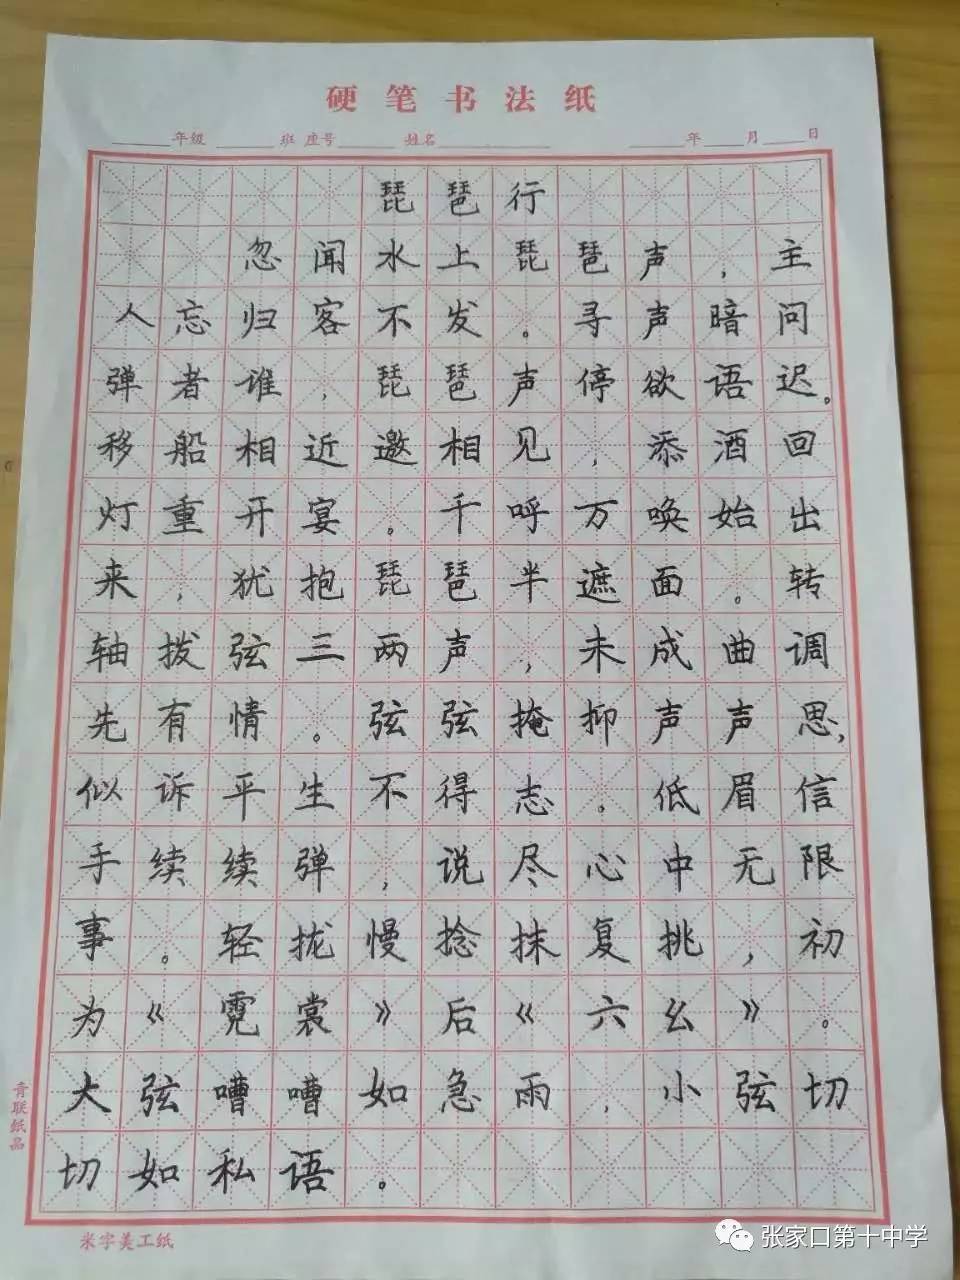 硬笔书法纸
年级 班 座号 姓名 年 月 日
琵琶行
忽闻水上琵琶声，主
人忘归客不发。寻声暗问
弹者谁，琵琶声停欲语迟。
移船相近邀相见，添酒回
灯重开宴。千呼万唤始出
来，犹抱琵琶半遮面。转
轴拨弦三两声，未成曲调
先有情。弦弦掩抑声声思，
似诉平生不得志。低眉信
手续续弹，说尽心中无限
事。轻拢慢捻抹复挑，初
为《霓裳》后《六幺》。
大弦嘈嘈如急雨，小弦切
切如私语。
青联纸品
米字美工纸
张家口第十中学